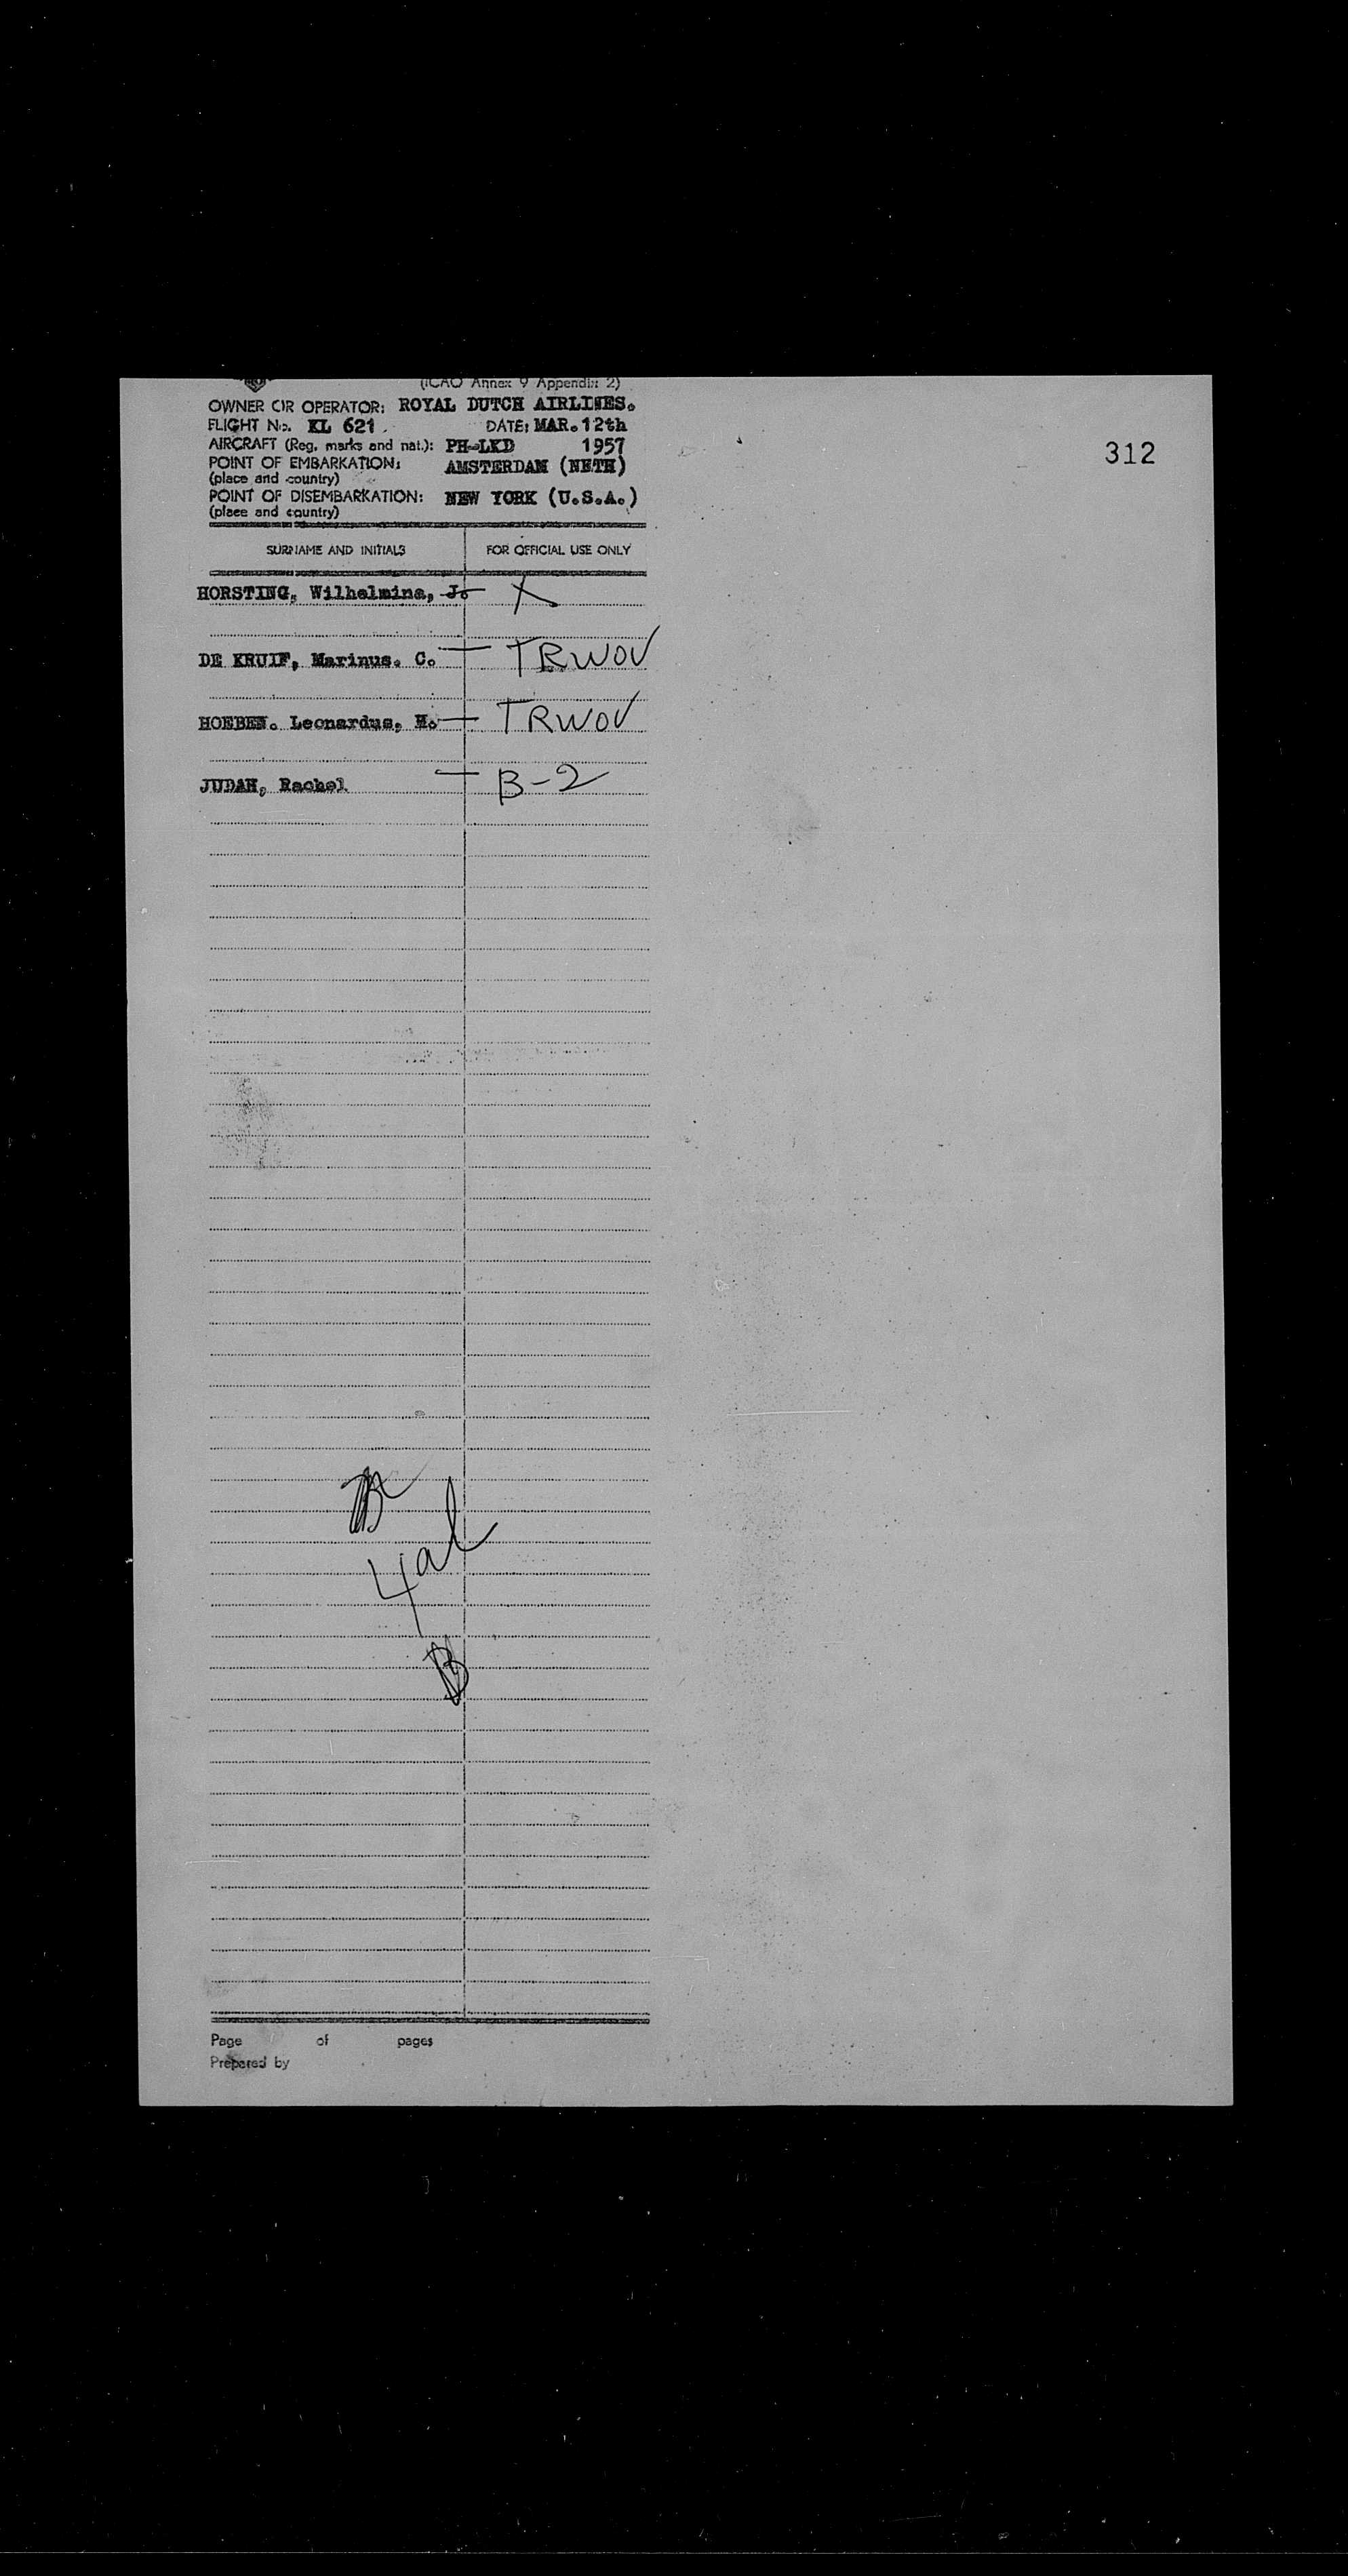 (ICAO Annex 9 Appendix 2)
OWNER OR OPERATOR: ROYAL DUTCH AIRLINES.
FLIGHT No. KL 621 DATE: MAR. 12th
AIRCRAFT (Reg. marks and nat.): PH-LKD 1957
312
POINT OF EMBARKATION: AMSTERDAM (NETH)
(place and country)
POINT OF DISEMBARKATION: NEW YORK (U.S.A.)
(place and country)
SURNAME AND INITIALS FOR OFFICIAL USE ONLY
HORSTING, Wilhelmina, J. X
DE KRUIF, Marinus. C. — TRWOV
HOEBEN. Leonardus, H. — TRWOV
JUDAH, Rachel — B-2
4 al
B
Page of pages
Prepared by